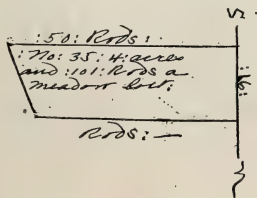 :50: Rods:
:No: 35: 4: acres
and :101: Rods a
meadow Lott:
:16:
Rods: —